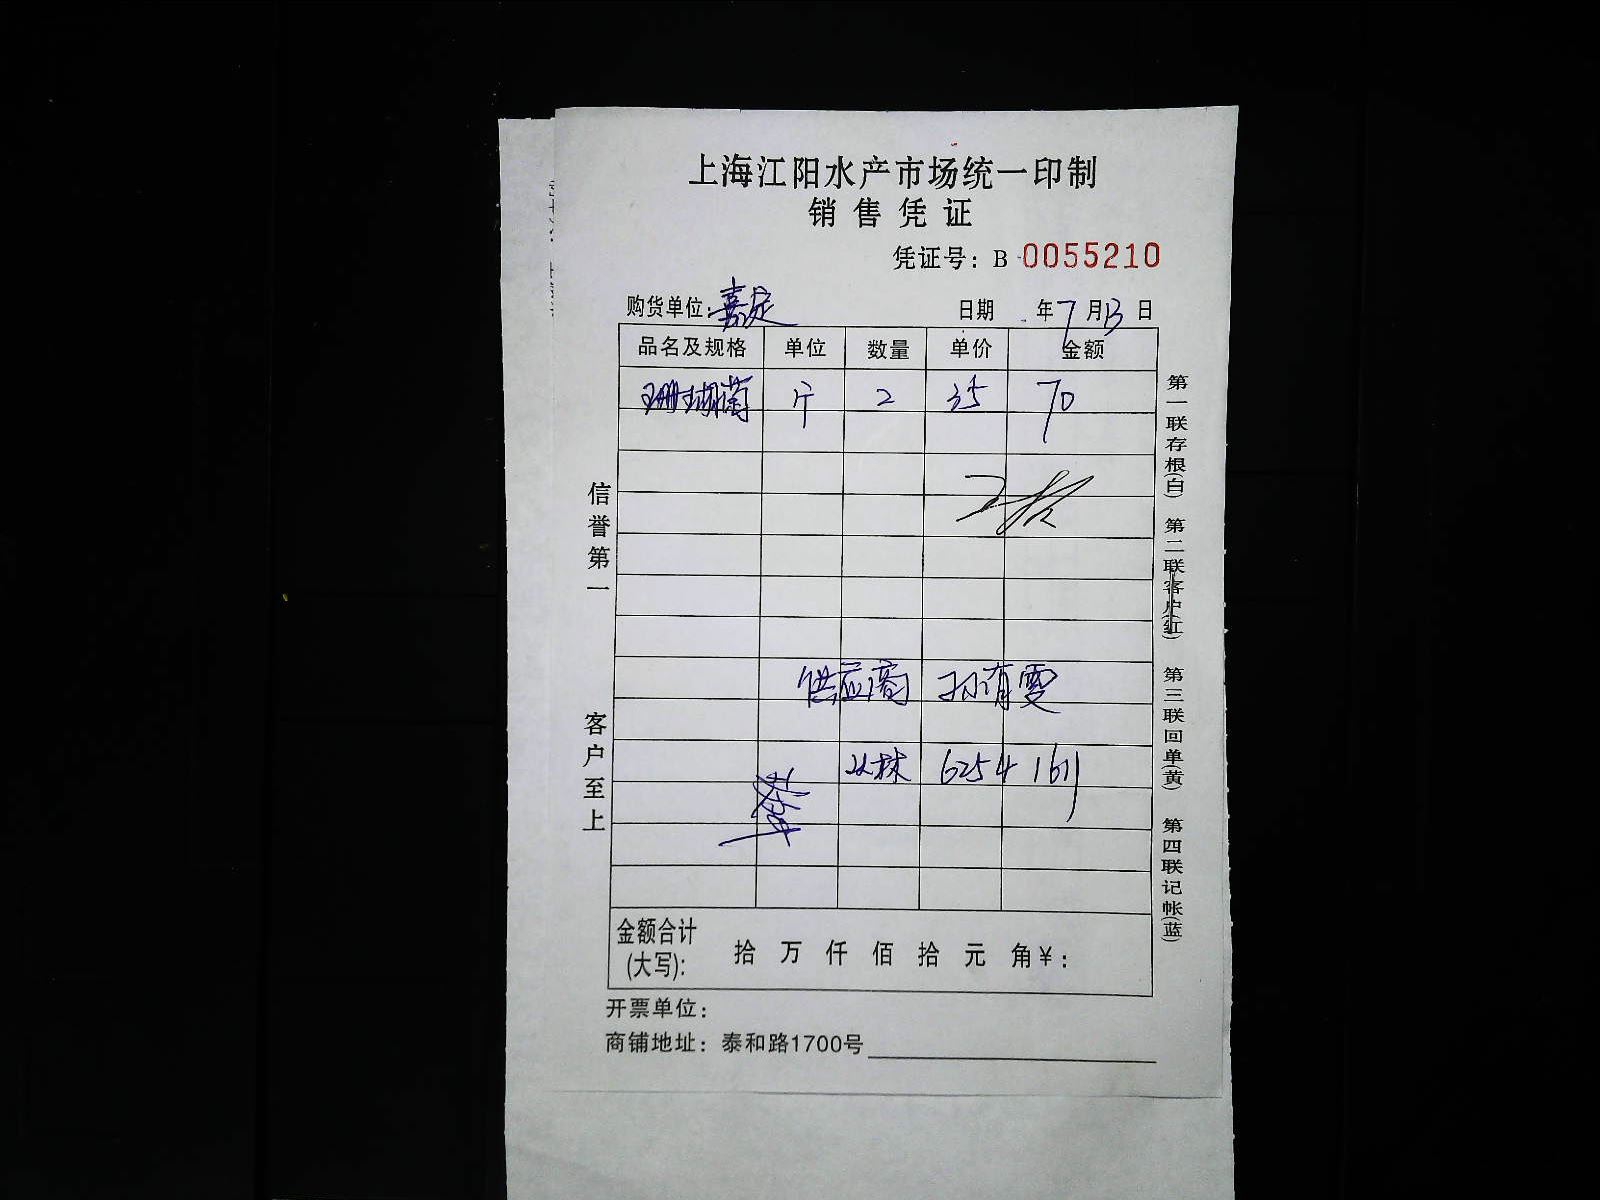 上海江阳水产市场统一印制
销售凭证
凭证号：B 0055210
购货单位：嘉定 日期 年7月13日
品名及规格 单位 数量 单价 金额
珊瑚菌 斤 2 35 70
供应商 孙有雯
丛林 6254 1611
金额合计(大写)： 拾 万 仟 佰 拾 元 角 ¥：
开票单位：
商铺地址：泰和路1700号
信誉第一 客户至上
第一联存根(白) 第二联客户(红) 第三联回单(黄) 第四联记帐(蓝)